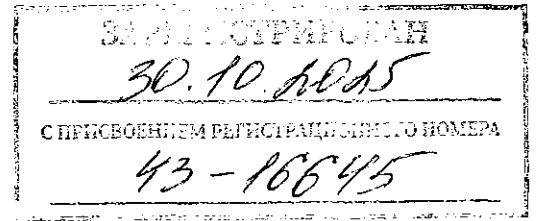 ЗАРЕГИСТРИРОВАН
30.10.2025
С ПРИСВОЕНИЕМ РЕГИСТРАЦИОННОГО НОМЕРА
43-16645